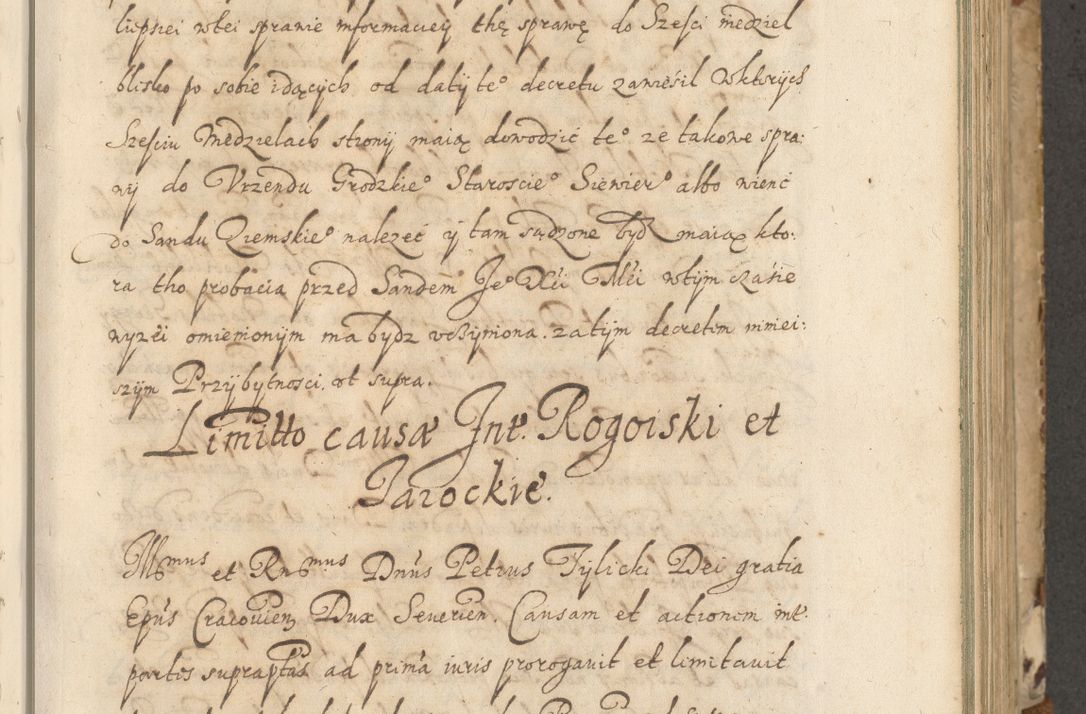 liepsiei wtei sprawie informaciey thę sprawę do Sześci niedziel
blisko po sobie idących od daty te° decretu zawiesił wktorÿch
Sześciu Niedzielach strony maią dowodzić te° że takowe spra:
wÿ do Vrzendu Grodzkie° Staroscie° Siewier° albo wienc
do Sandu Ziemskie° nalezeć ÿ tam sądzone bÿdź maiąx kto:
ra tho probacia przed Sandem Je° Xci Mći wtÿm czasie
wyzei omienionÿm ma bÿdz vcżÿniona. zatÿm decretem niniei:
szÿm Przÿbÿtnosci. vt supra.
Limitto causæ Int. Rogoiski et
Jarockie.
Illmus et Rndmus Dnus Petrus Tÿlicki Dei gratia
Epus Cracovien Dux Severien. Causam et actionem int.
partes supraptas ad prima iuris prorogavit et limitavit